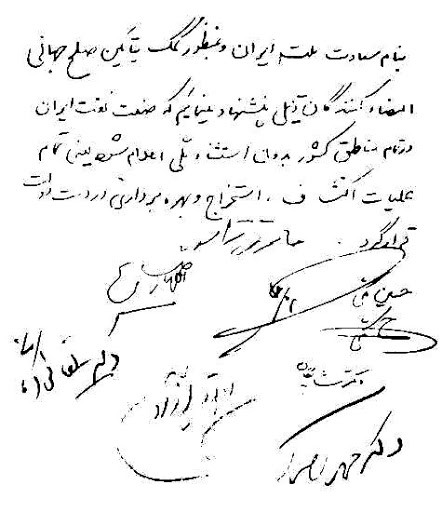 بنام سعادت ملت ایران و بمنظور کمک بتأمین صلح جهانی
امضاء کنندگان ذیل پیشنهاد مینمائیم که صنعت نفت ایران
در تمام مناطق کشور بدون استثناء ملی اعلام شود یعنی تمام
عملیات اکتشاف ، استخراج و بهره برداری در دست دولت
قرار گیرد .
حائری زاده
اللهیار صالح
حسین مکی
دکتر شایگان
دکتر مصدق